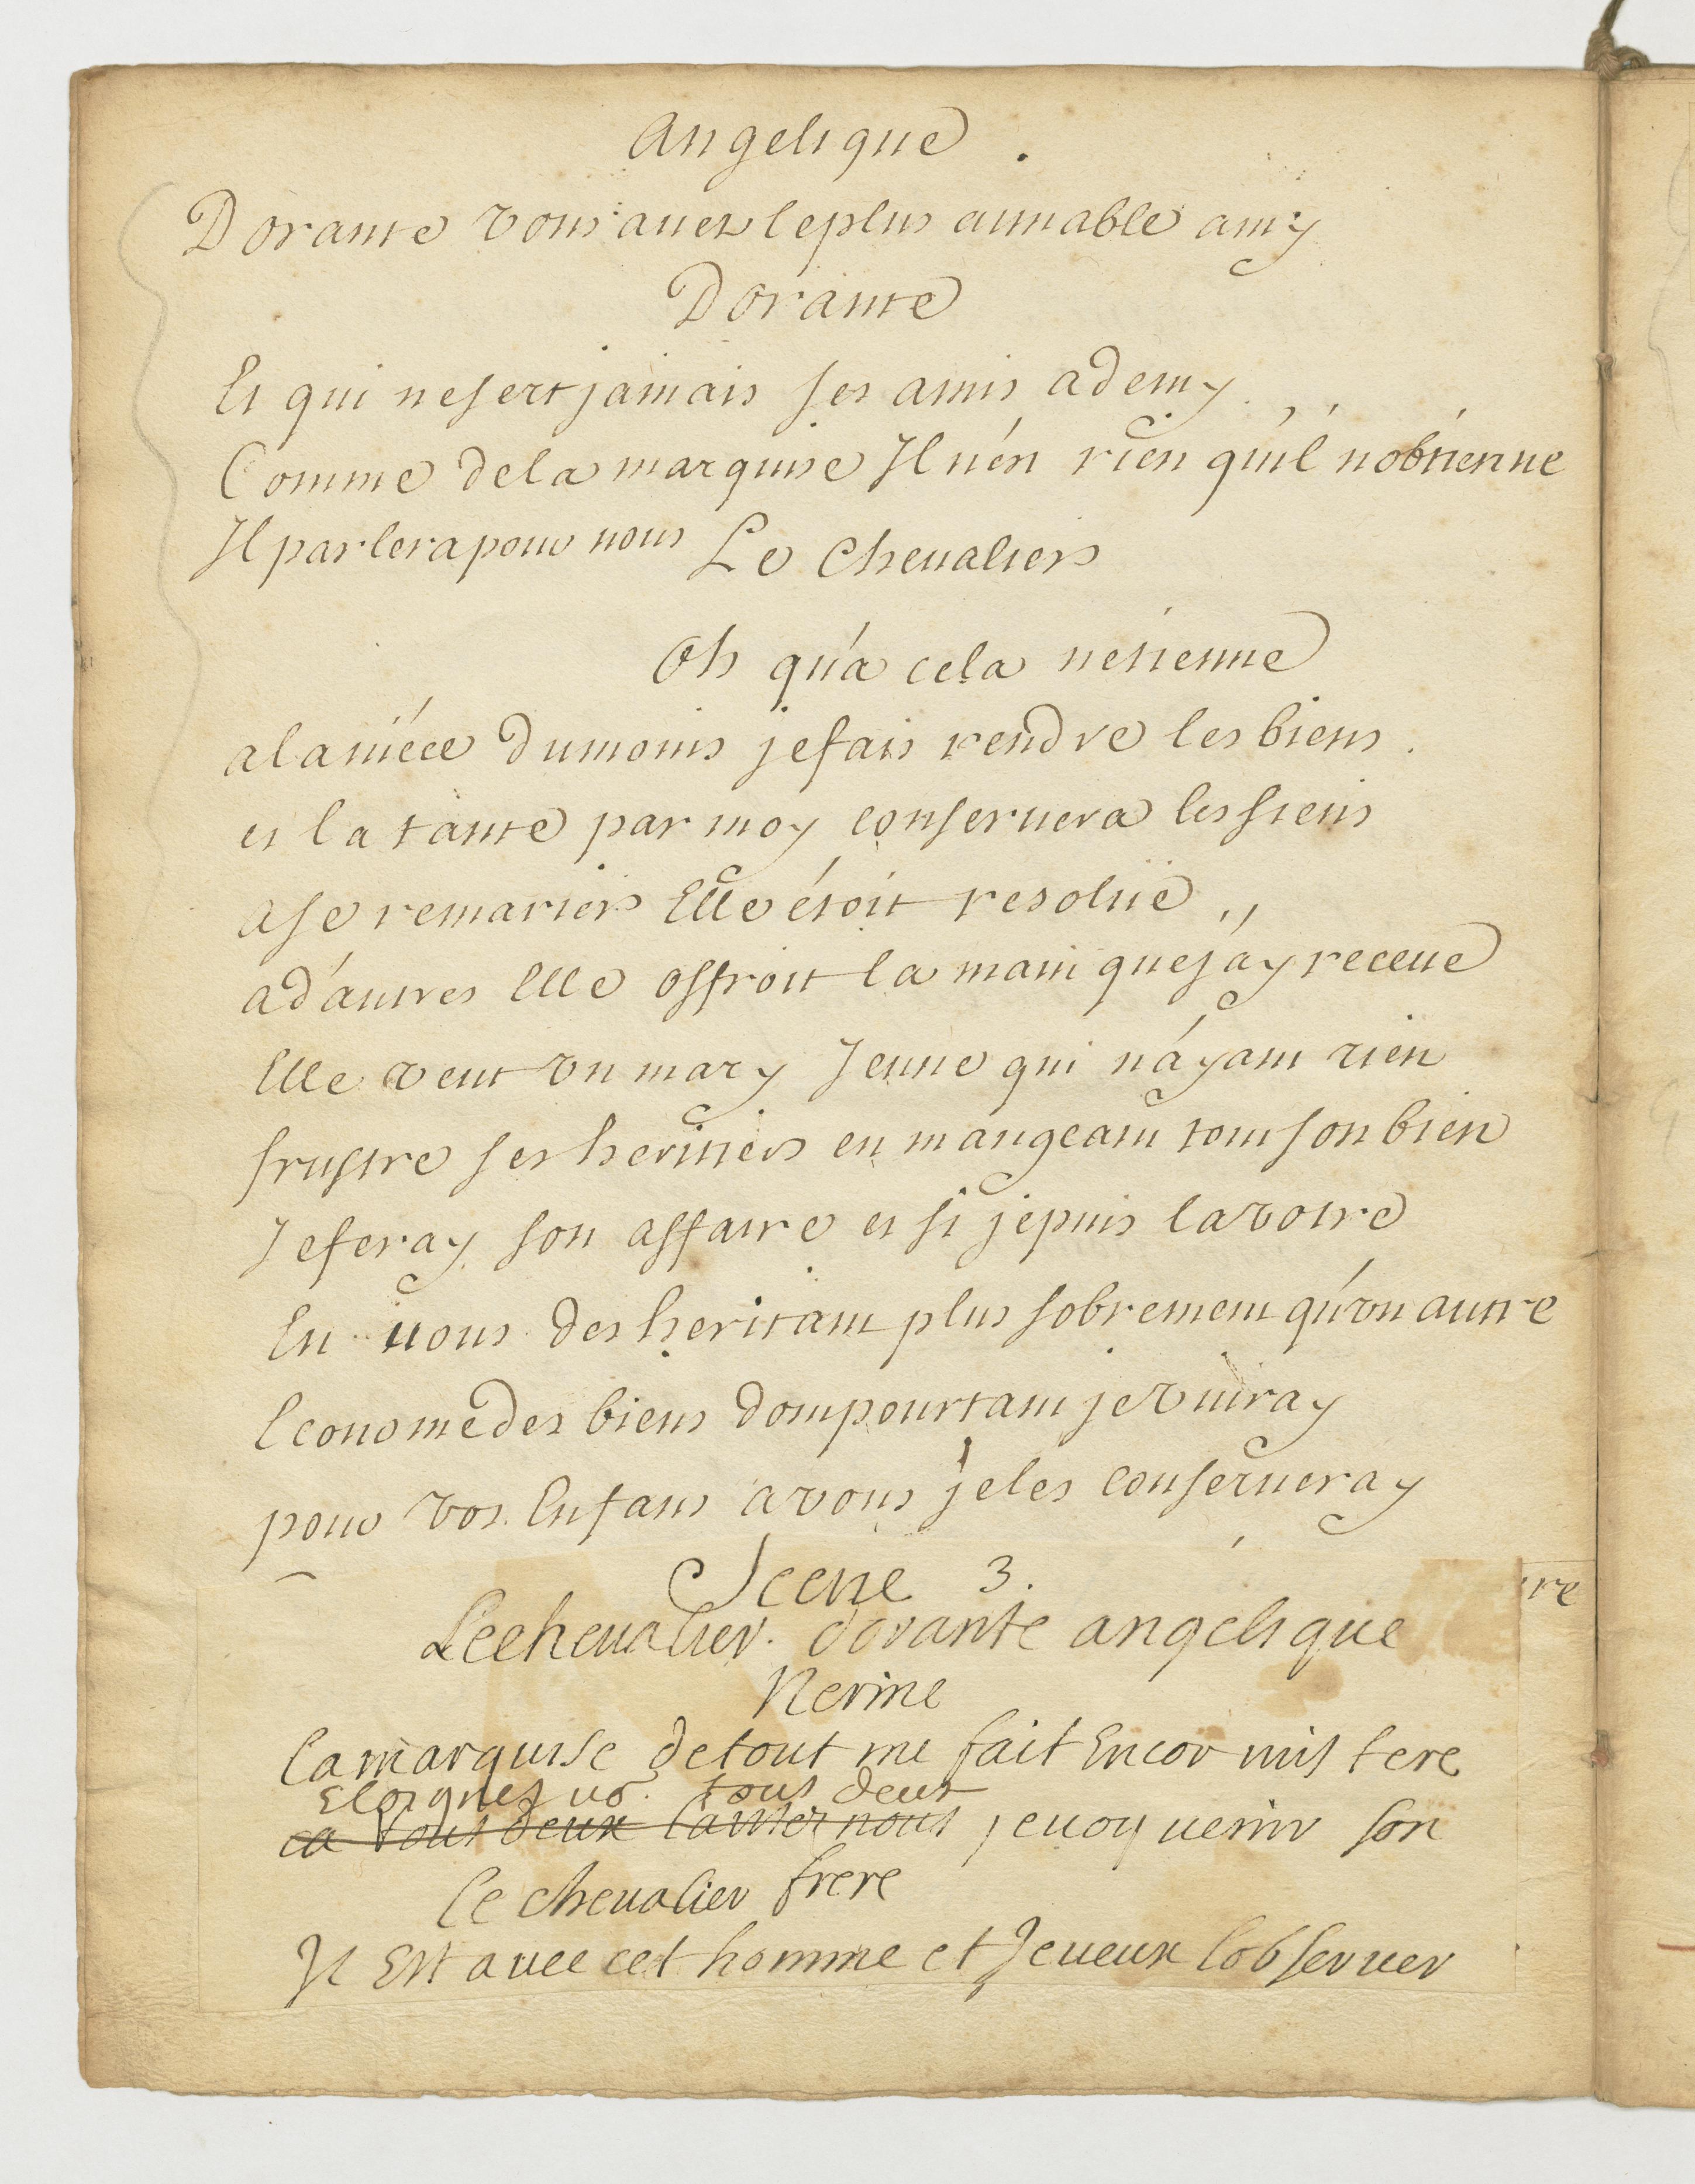 Angelique .
Dorante vous auez le plus aimable amy
Dorante
Et qui ne sert jamais ses amis a demy .
Comme de la marquise Il n'est rien qu'il n'obtienne
Il parlera pour nous
Le Chevalier
Oh qu'a cela ne tienne
a la niéce du moins je fais rendre les biens .
et la tante par moy conseruera les siens
a se remarier Elle étoit resolüe ,,
a d'autres Elle offroit la main que j'ay receue
Elle veut vn mary Jeune qui n'áyant rien
frustre ses heritiers en mangeant tout son bien
Je feray son affaire et si je puis la votre
En vous desheritant plus sobrement qu'vn autre
Econome des biens dont pourtant je viuray
pour vos Enfans a vous je les conserueray
Scene 3.
Le cheualier . dorante angelique
Nerine
la marquise de tout me fait Encor mistere
Eloignez vo. tous deux
ca tous deux laissez nous je uoy uenir son
frere
le cheualier
Il Est auec cet homme et Je ueux l'obseruer
ire